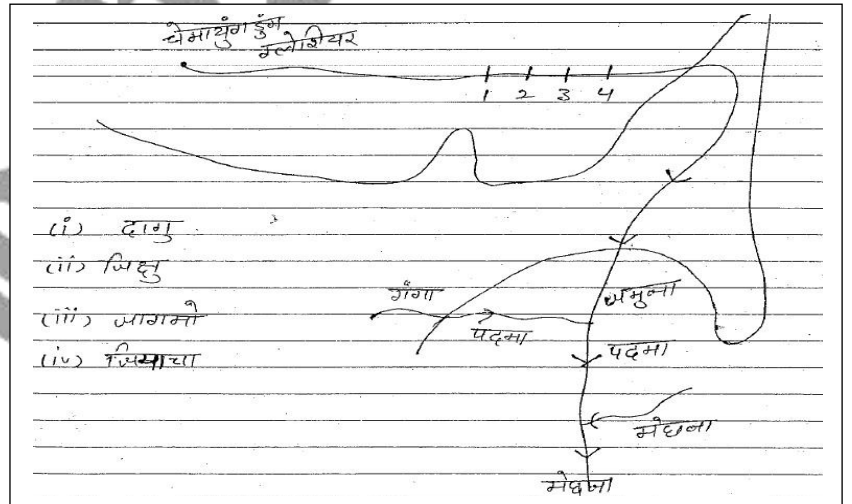 चेमायुंग डुंग
ग्लेशियर
1 2 3 4
(i) दागु
(ii) जिक्षु
(iii) जागमो
(iv) जियाचा
गंगा
पदमा
जमुना
पदमा
मेघना
मेघना